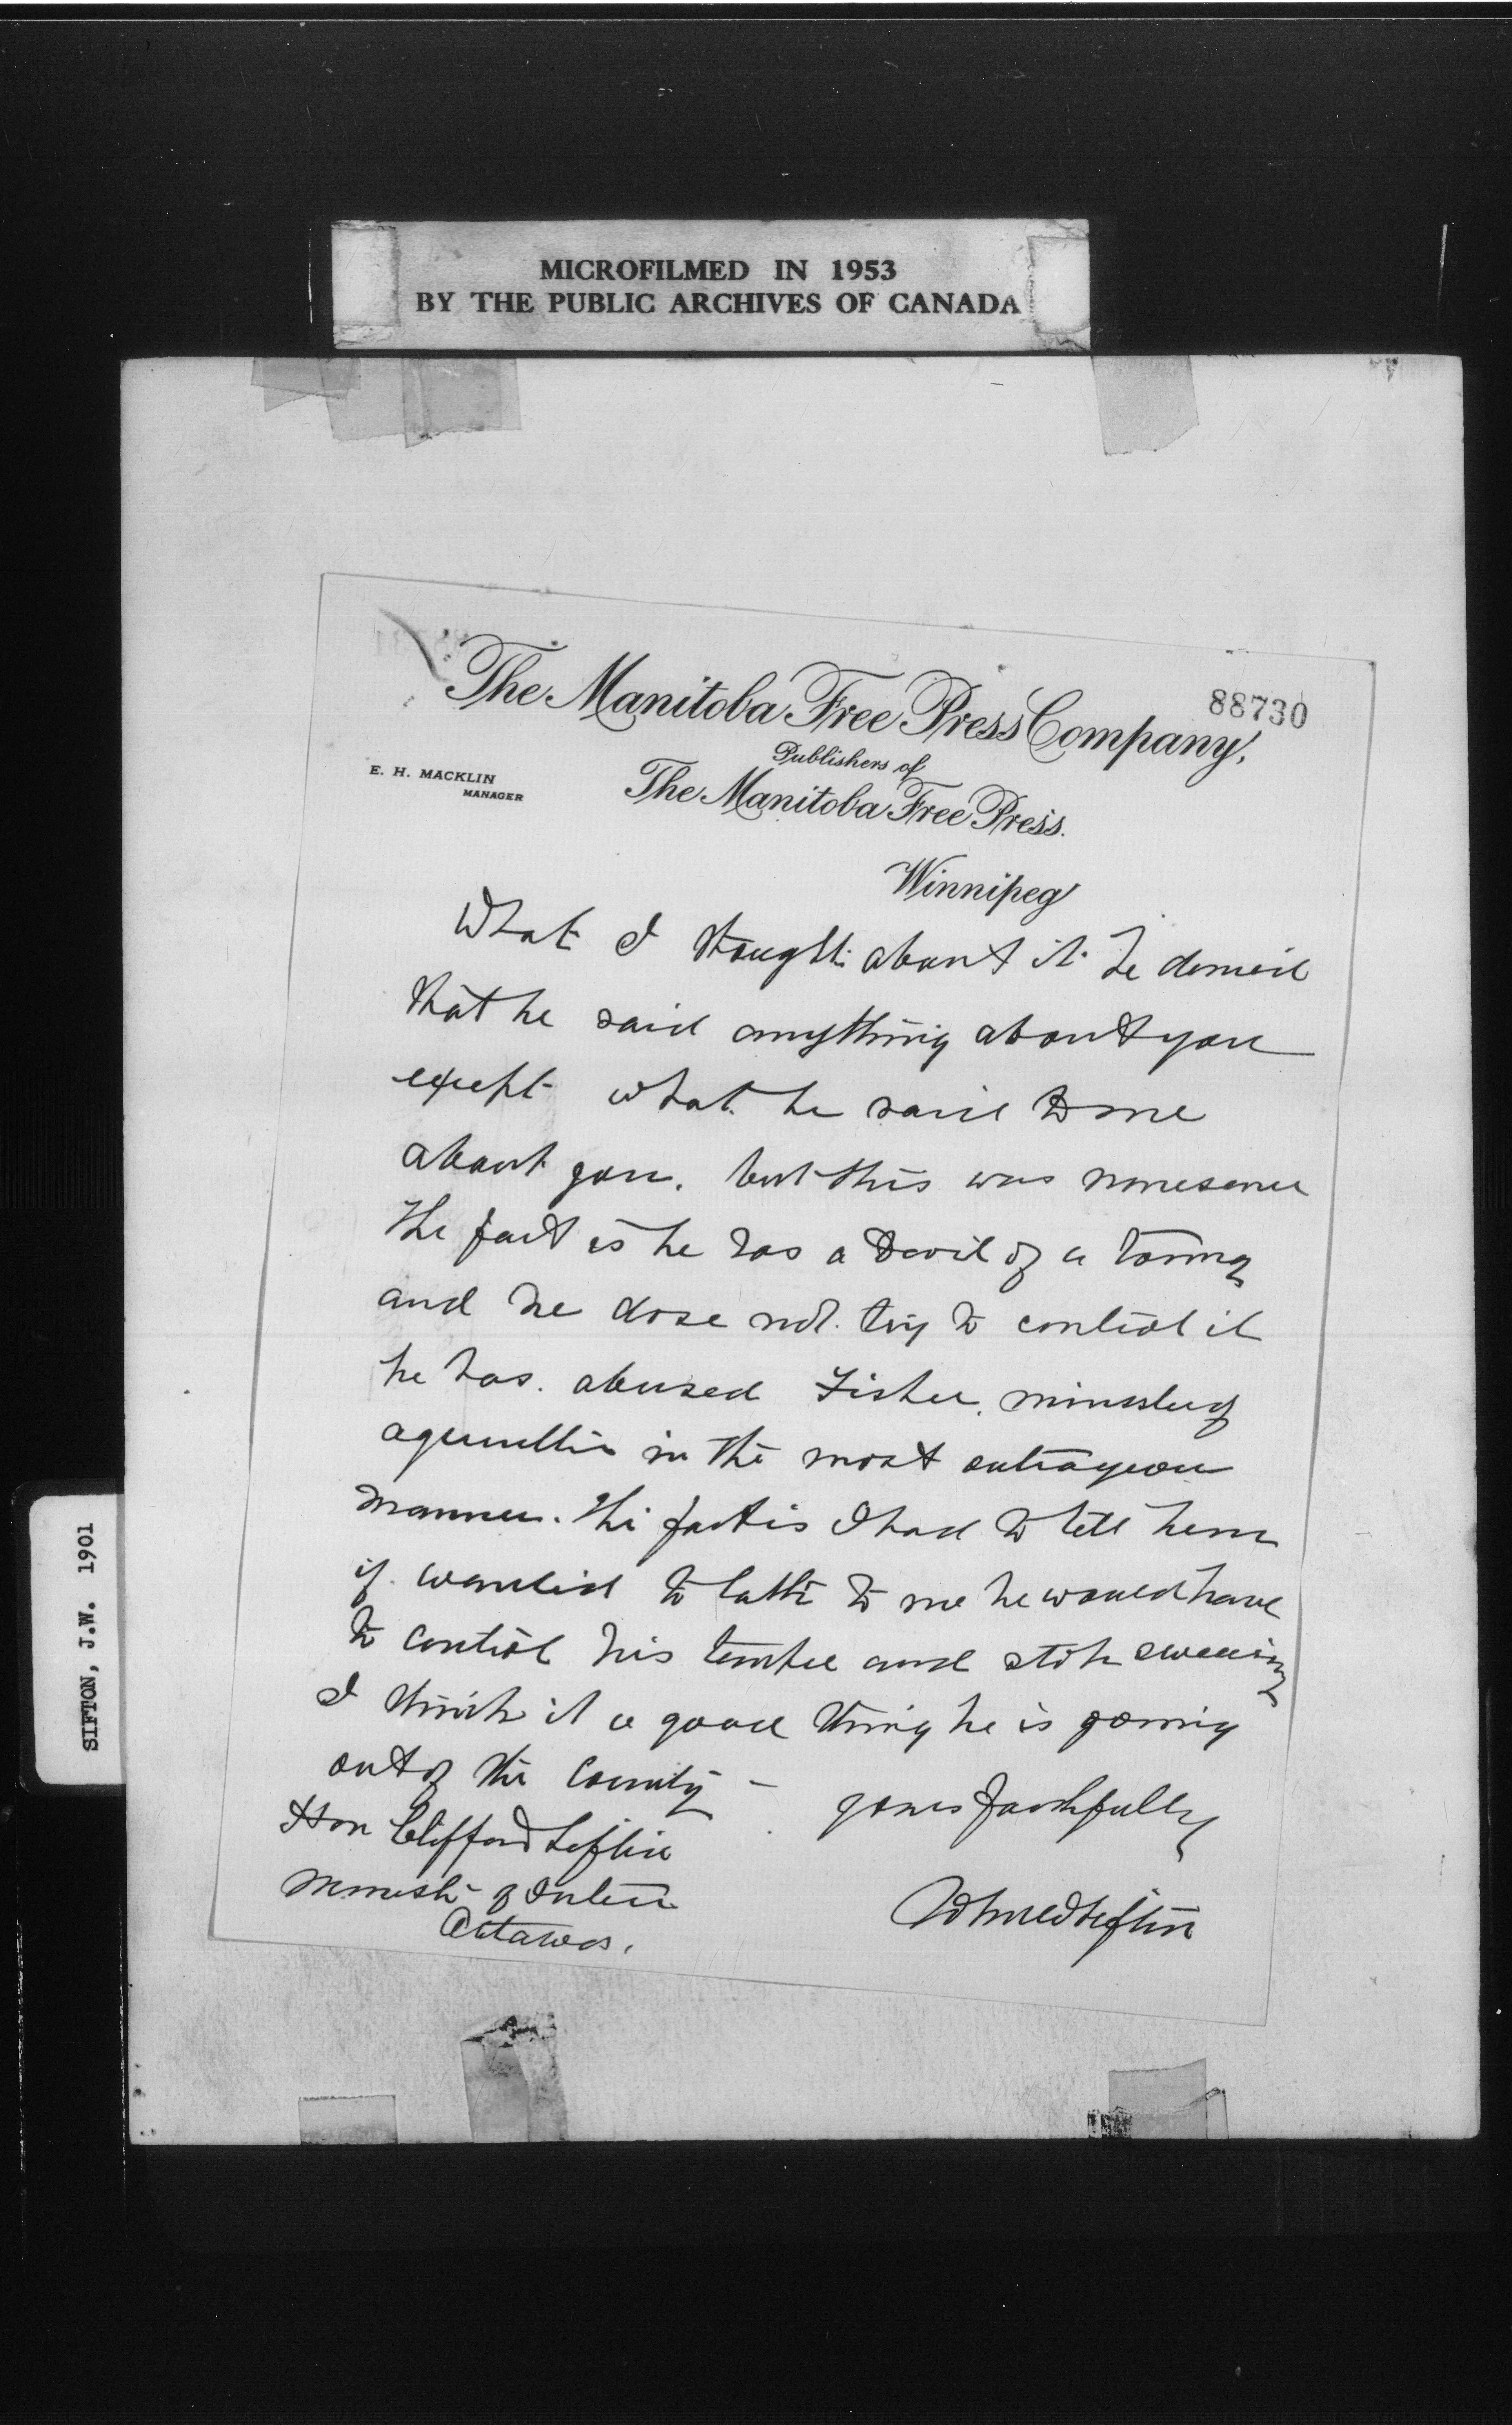 MICROFILMED IN 1953
BY THE PUBLIC ARCHIVES OF CANADA
88730
The Manitoba Free Press Company,
Publishers of
The Manitoba Free Press.
E. H. MACKLIN
MANAGER
Winnipeg
What I thought about it he denied
that he said anything about you
except what he said to me
about you. but this was nonesence
the fact is he has a Devil of a toung
and he dose not try to control it
he has abused Fisher, minister of
agriculture in the most outrageous
manner. The fact is I had to tell him
if wanted to talk to me he would have
to control his temper and stop swearing
I think it a good thing he is going
out of the County -
yours faithfully
Hon Clifford Sifton
Minister of Interior
Ottawa.
J W Sifton
SIFTON, J.W. 1901